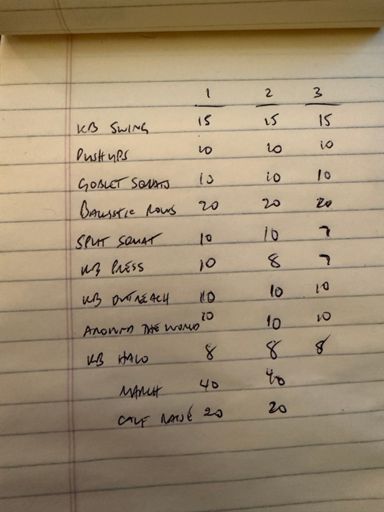 1 2 3
KB SWING 15 15 15
PUSHUPS 10 10 10
GOBLET SQUATS 10 10 10
BALLISTIC ROWS 20 20 20
SPLIT SQUAT 10 10 7
KB PRESS 10 8 7
KB OUTREACH 10 10 10
AROUND THE WORLD 10 10 10
KB HALO 8 8 8
MARCH 40 40
CALF RAISE 20 20